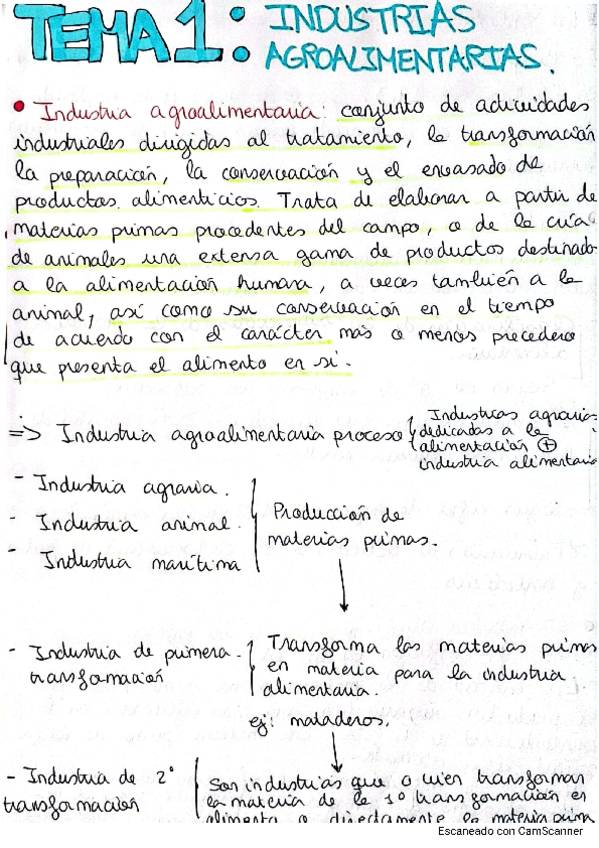 TEMA 1: INDUSTRIAS
AGROALIMENTARIAS.
• Industria agroalimentaria: conjunto de actividades
industriales dirigidas al tratamiento, la transformación
la preparación, la conservación y el envasado de
productos alimenticios. Trata de elaborar a partir de
materias primas procedentes del campo, o de la cría
de animales una extensa gama de productos destinado
a la alimentación humana, a veces también a la
animal, así como su conservación en el tiempo
de acuerdo con el carácter más o menos precedero
que presenta el alimento en sí.
=> Industria agroalimentaria proceso
Industrias agrarias
dedicadas a la
alimentación +
industria alimentaria
- Industria agraria.
- Industria animal.
- Industria marítima
Producción de
materias primas.
- Industria de primera
transformación
Transforma las materias primas
en materia para la industria
alimentaria.
ej: mataderos.
- Industria de 2º
transformación
Son industrias que o bien transforman
la materia de la 1º transformación en
alimento o directamente la materia prima
Escaneado con CamScanner